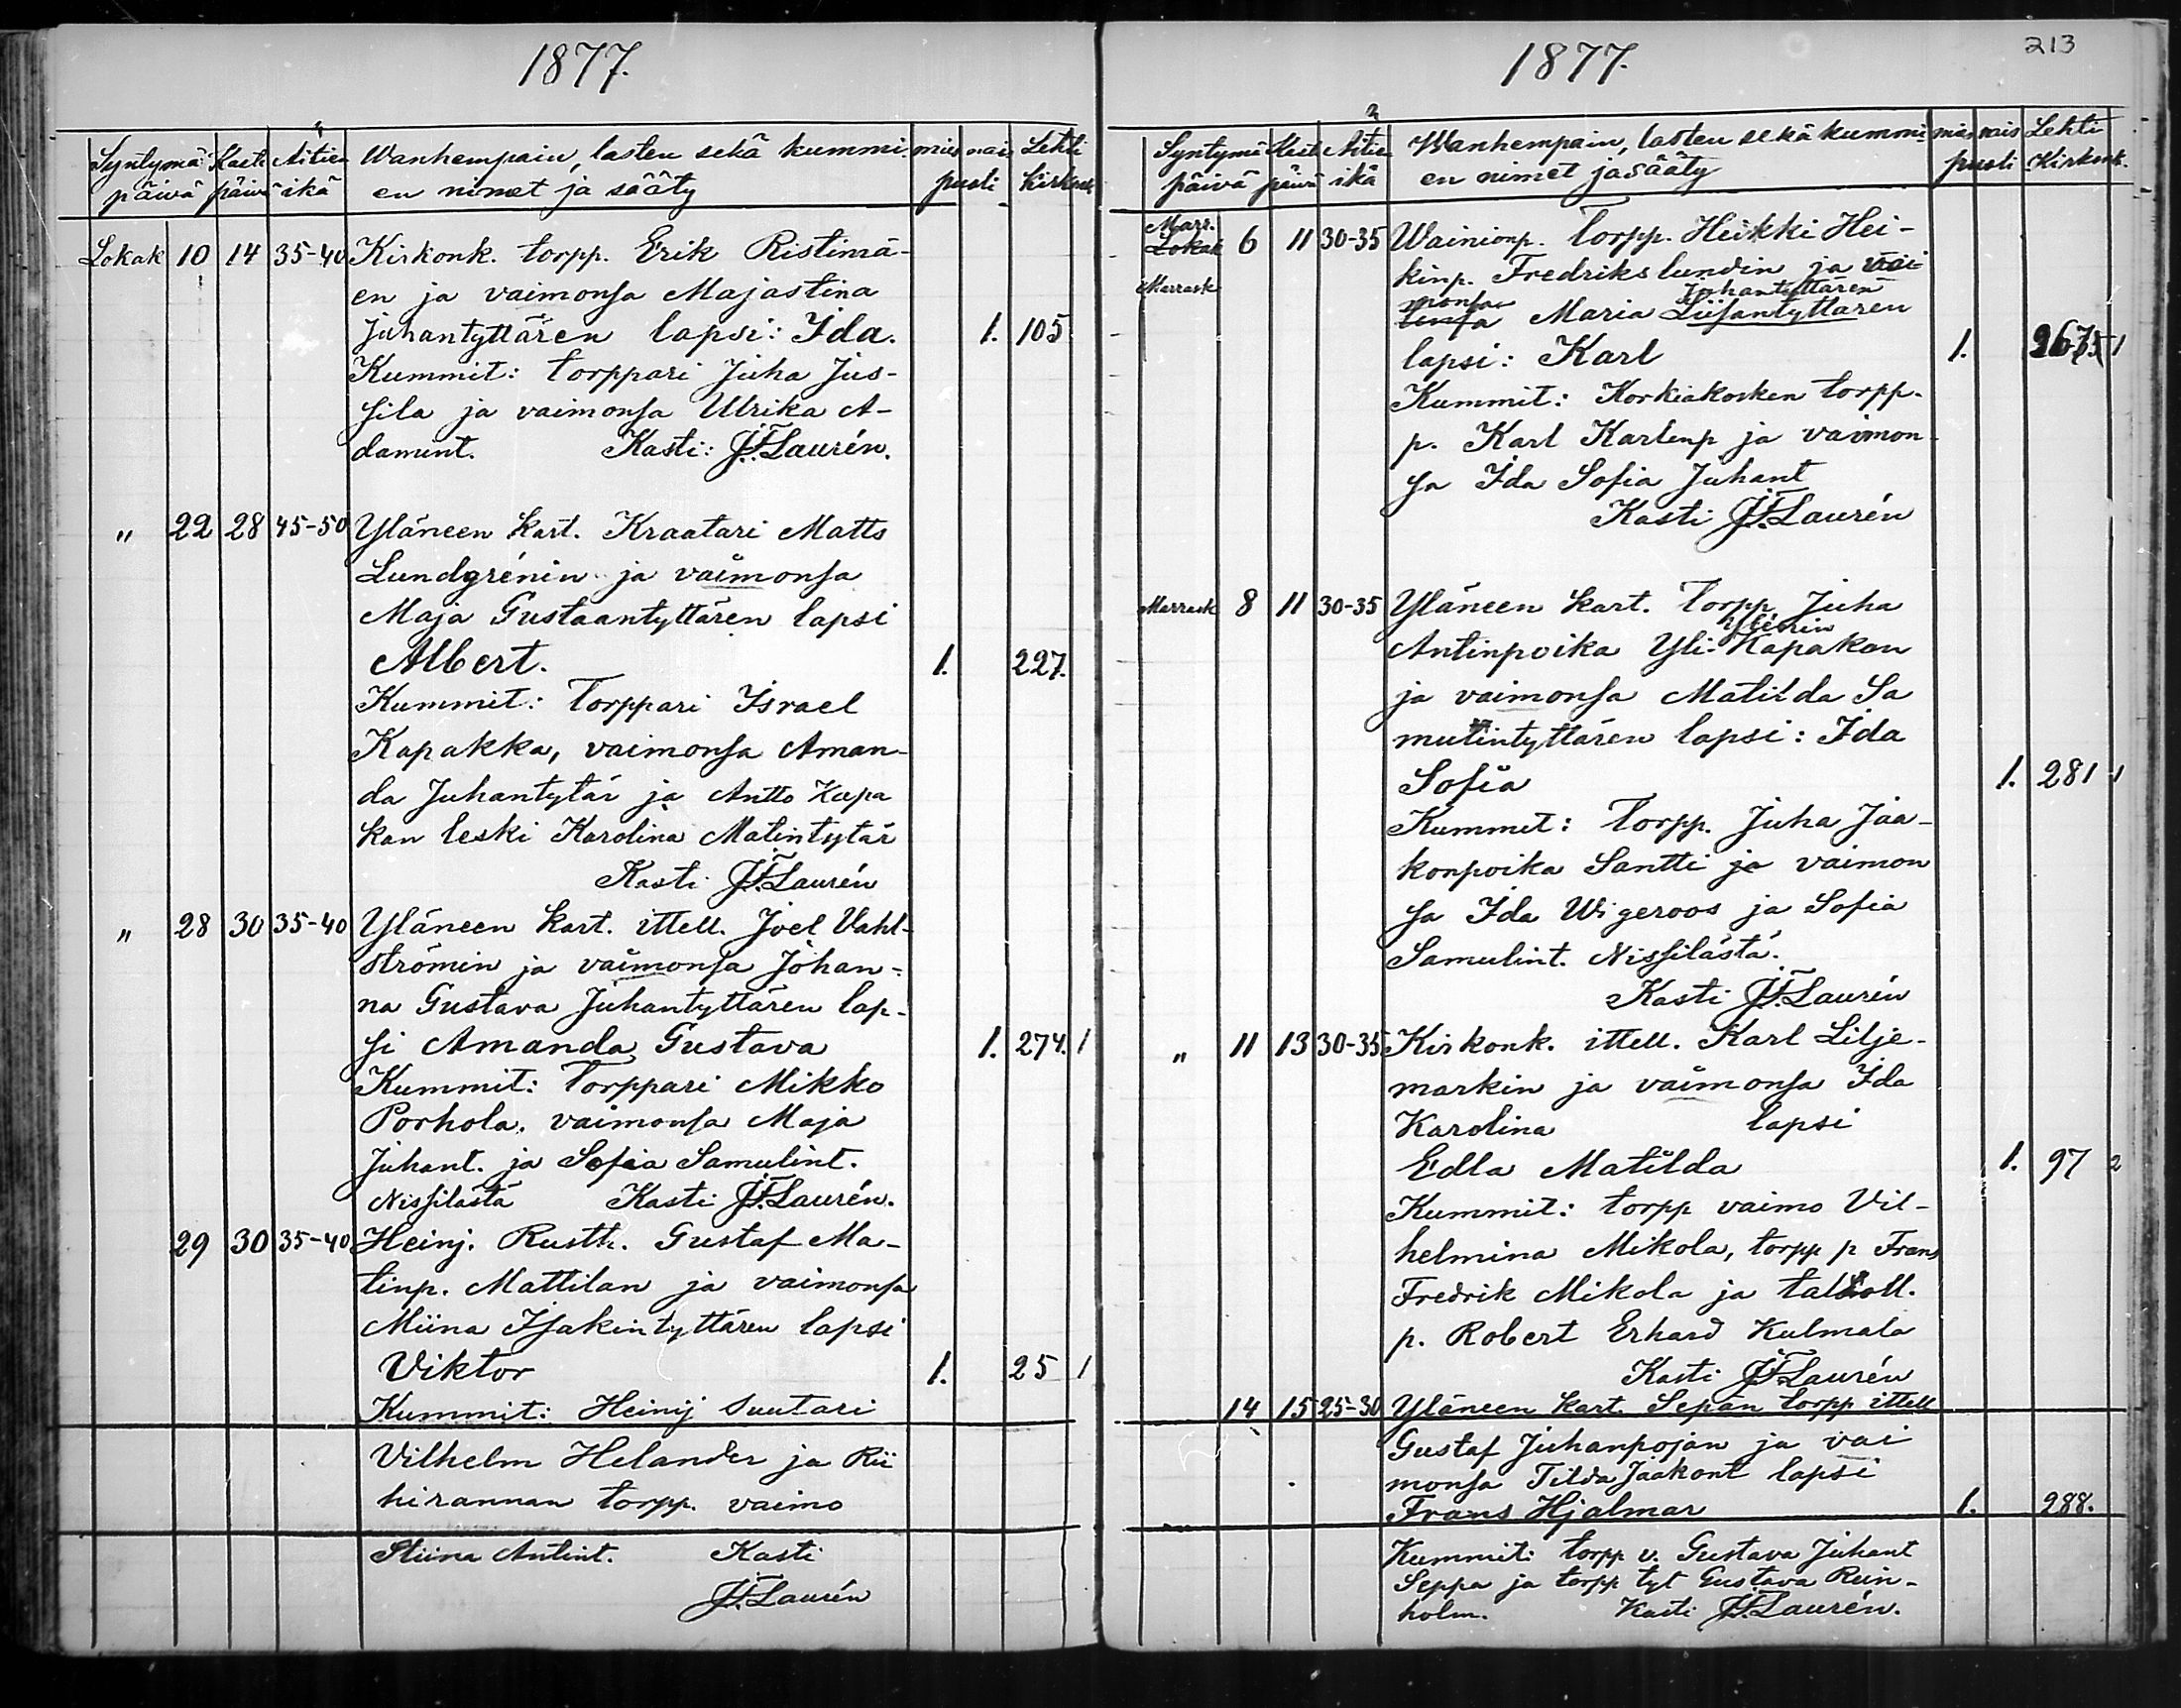 1877.
Syntymä Kaste Äitien Wanhempain, lasten sekä kummi- mies nais Lehti
päivä päivä ikä en nimet ja sääty puoli Kirkonk
Lokak 10 14 35-40 Kirkonk. torpp. Erik Ristimä-
en ja vaimonsa Majastina
Juhantyttären lapsi: Ida. 1. 105
Kummit: torppari Juha Jus-
sila ja vaimonsa Ulrika A-
damint. Kasti: J.F. Laurén.
" 22 28 45-50 Yläneen kart. Kraatari Matts
Lundgrénin ja vaimonsa
Maja Gustaantyttären lapsi
Albert. 1. 227.
Kummit: Torppari Israel
Kapakka, vaimonsa Aman-
da Juhantytär ja Antto Kapa
kan leski Karolina Matintytär
Kasti J.F. Laurén
" 28 30 35-40 Yläneen kart. ittell. Joel Vahl-
strömin ja vaimonsa Johan-
na Gustava Juhantyttären lap-
si Amanda Gustava 1. 274. 1
Kummit: Torppari Mikko
Porhola, vaimonsa Maja
Juhant. ja Sofia Samulint.
Nissilästä Kasti J.F. Laurén.
29 30 35-40 Heinj. Rustt. Gustaf Ma-
tinp. Mattilan ja vaimonsa
Miina Isakintyttären lapsi
Viktor 1. 25 1
Kummit: Heinij Suutari
Vilhelm Helander ja Rii
hirannan torpp. vaimo
Stiina Antint. Kasti
J.F. Laurén
213
1877.
Syntymä Kaste Äitien Wanhempain, lasten sekä kummi- mies nais Lehti
päivä päivä ikä en nimet ja sääty puoli Kirkonk.
Marr.
Lokak 6 11 30-35 Wainionp. Torpp. Heikki Hei-
Marrask kinp. Fredrikslundin ja vai
monsa Maria Liisantyttären
Juhantyttären
lapsi: Karl 1.
Kummit: Korkiakosken torpp.
p. Karl Karlinp ja vaimon-
sa Ida Sofia Juhant
Kasti J.F. Laurén
Marrask 8 11 30-35 Yläneen kart. Torpp Juha
Antinpoika Yli-Kapakan
ja vaimonsa Matilda Sa
mulintyttären lapsi: Ida
Sofia 1. 281 1
Kummit: Torpp. Juha Jaa-
konpoika Santti ja vaimon
sa Ida Wigeroos ja Sofia
Samulint. Nissilästä.
Kasti J.F. Laurén
" 11 13 30-35 Kirkonk. ittell. Karl Lilje-
markin ja vaimonsa Ida
Karolina lapsi
Edla Matilda 1. 97 2
Kummit: torpp vaimo Vil-
helmina Mikola, torpp p Frans
Fredrik Mikola ja
p. Robert Erhard Kulmala
Kasti J.F. Laurén
14 15 25-30 Yläneen kart. Sepän torpp ittell
Gustaf Juhanpojan ja vai
monsa Tilda Jaakont lapsi
Frans Hjalmar 1. 288.
Kummit: torpp v. Gustava Juhant
Seppä ja torpp tyt Gustava Rein-
holm. Kasti J.F. Laurén.